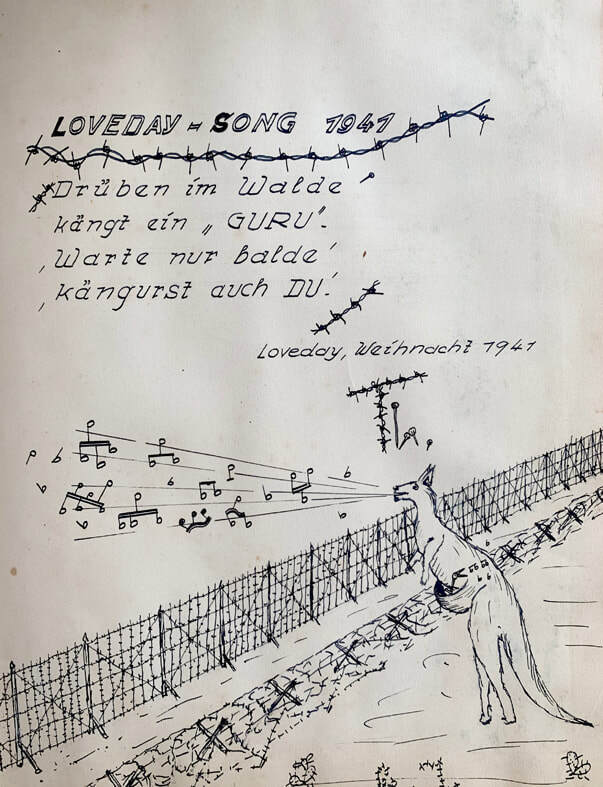 LOVEDAY = SONG 1941
Drüben im Walde
kängt ein „GURU".
‚Warte nur balde'
‚kängurst auch DU.'
Loveday, Weihnacht 1941